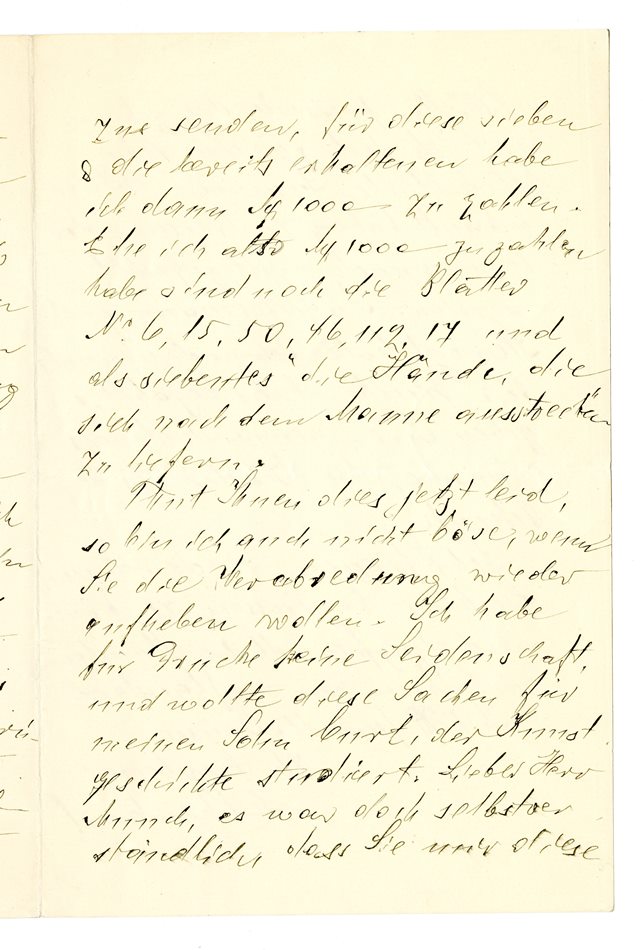 zu senden, für diese sieben
& die bereits erhaltenen habe
ich dann M 1000 zu zahlen.
Ehe ich also M 1000 zu zahlen
habe sind noch die Blätter
No. 6, 15, 50, 46, 112, 17 und
als siebentes "die Hände, die
sich nach dem Manne ausstrecken"
zu liefern.
Thut Ihnen dies jetzt leid,
so bin ich auch nicht böse, wenn
Sie die Verabredung wieder
aufheben wollen. Ich habe
für Drucke keine Leidenschaft,
und wollte diese Sachen für
meinen Sohn Curt, der Kunst
geschichte studiert. Lieber Herr
Munch, es war doch selbstver
ständlich, dass Sie mir diese